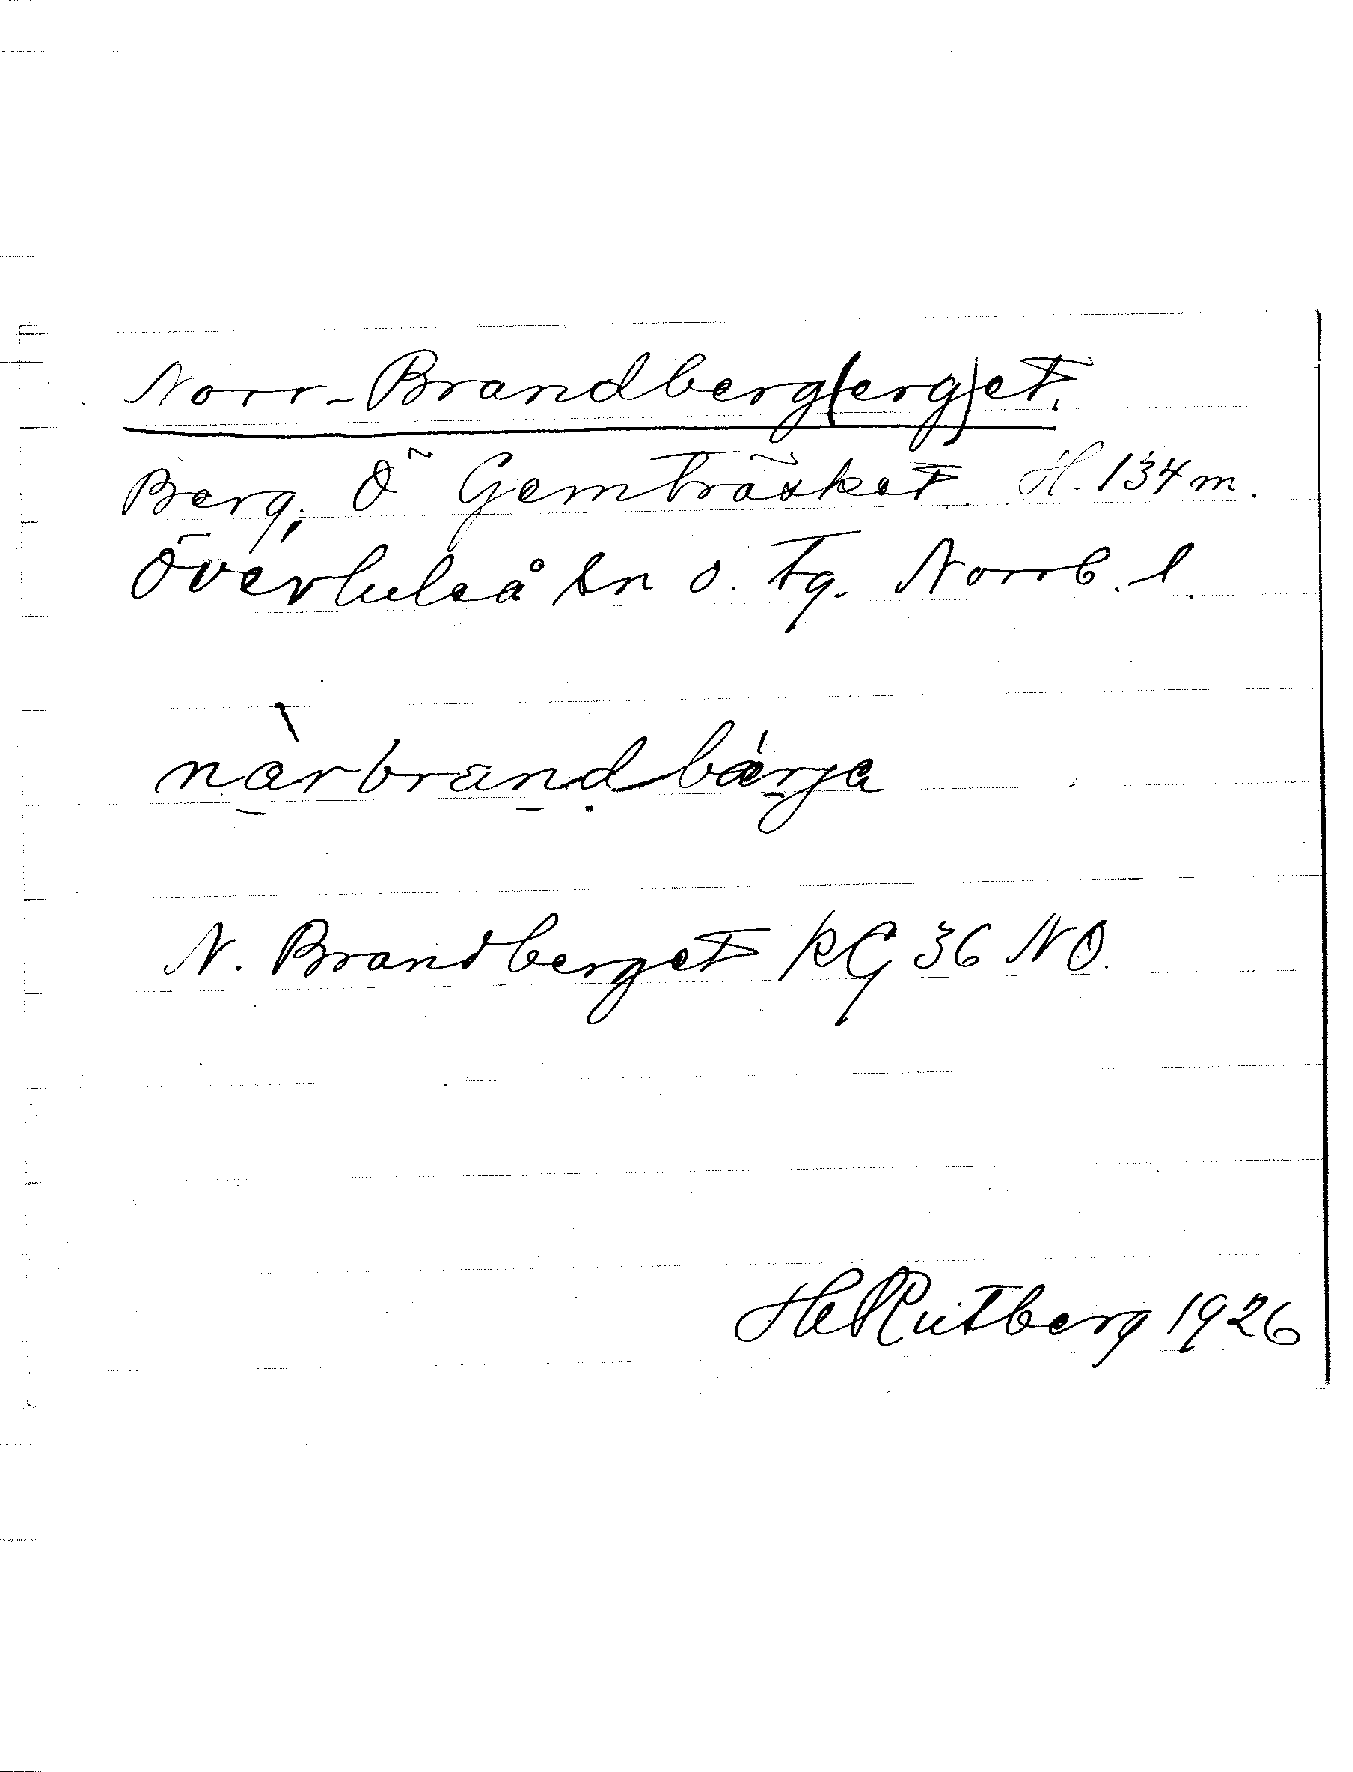 Norr-Brandberg(erg)et.
Berg, Ö Gemträsket. H. 134 m.
Överluleå sn o. tg. Norrb. l.
nòrbrandbǽrja
N. Brandberget RG 36 NO.
HRutberg 1926